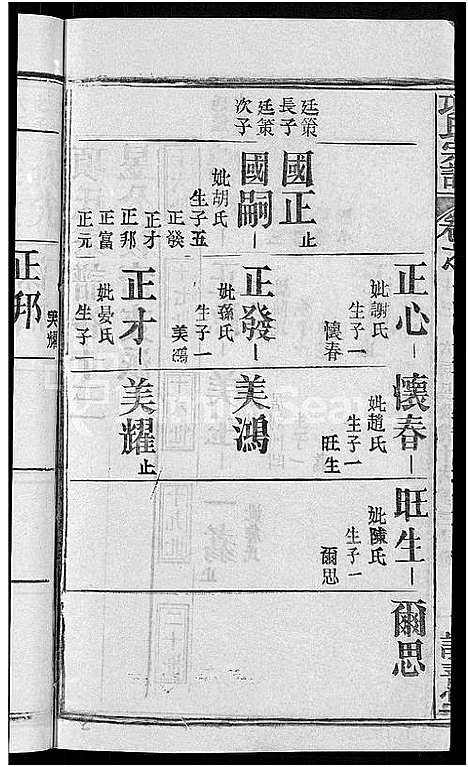 項氏宗譜
卷之
正心
妣謝氏
生子一
懷春
懷春
妣趙氏
生子一
旺生
旺生
妣陳氏
生子一
爾思
爾思
廷策
長子
國正
止
廷策
次子
國嗣
妣胡氏
生子五
正發
正才
正邦
正富
正元
正發
妣孫氏
生子一
美鴻
美鴻
正才
妣晏氏
生子一
美耀
美耀
止
正邦